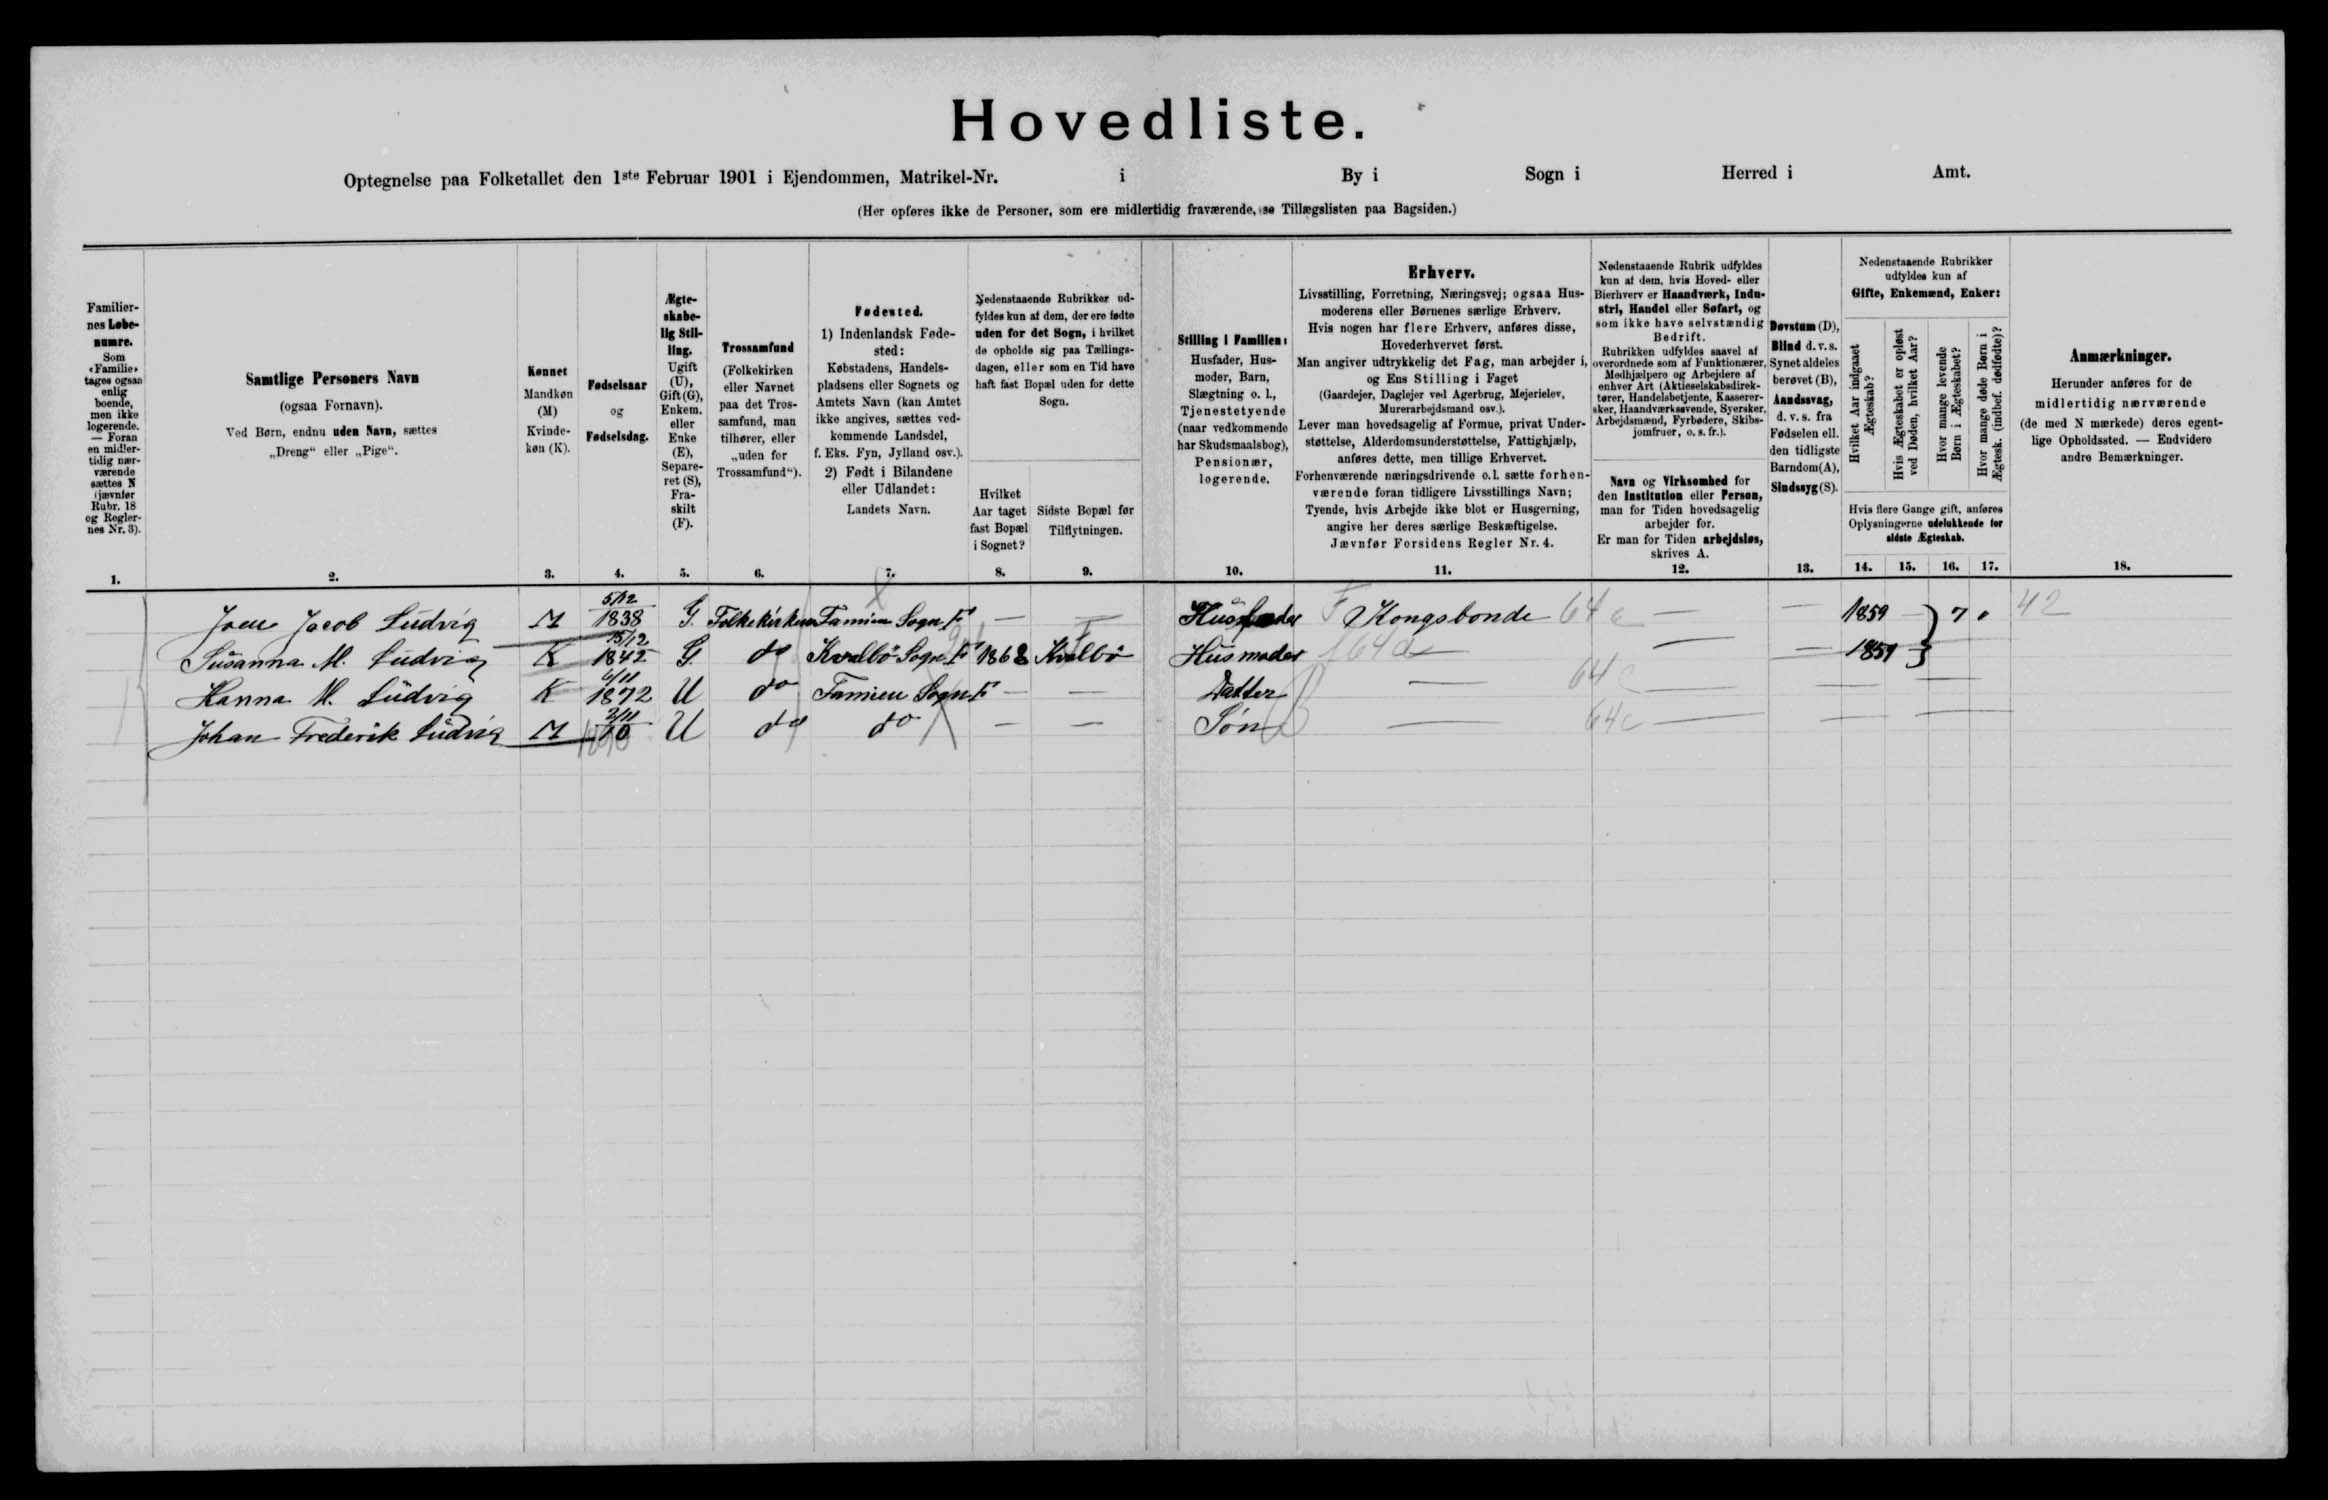 Hovedliste.
Optegnelse paa Folketallet den 1ste Februar 1901 i Ejendommen, Matrikel-Nr. i By i Sogn i Herred i Amt.
(Her opføres ikke de Personer, som ere midlertidig fraværende, se Tillægslisten paa Bagsiden.)
Familier-
nes Løbe-
numre.
Som
«Familie»
tages ogsaa
enlig
boende,
men ikke
logerende.
— Foran
en midler-
tidig nær-
værende
sættes N
(jævnfør
Rubr. 18
og Regler-
nes Nr. 3).
1.
Samtlige Personers Navn
(ogsaa Fornavn).
Ved Børn, endnu uden Navn, sættes
„Dreng“ eller „Pige“.
2.
Kønnet
Mandkøn
(M)
Kvinde-
køn (K).
3.
Fødselsaar
og
Fødselsdag.
4.
Ægte-
skabe-
lig Stil-
ling.
Ugift
(U),
Gift (G),
Enkem.
eller
Enke
(E),
Separe-
ret (S),
Fra-
skilt
(F).
5.
Trossamfund
(Folkekirken
eller Navnet
paa det Tros-
samfund, man
tilhører, eller
„uden for
Trossamfund“).
6.
Fødested.
1) Indenlandsk Føde-
sted:
Købstadens, Handels-
pladsens eller Sognets og
Amtets Navn (kan Amtet
ikke angives, sættes ved-
kommende Landsdel,
f. Eks. Fyn, Jylland osv.).
2) Født i Bilandene
eller Udlandet:
Landets Navn.
7.
Nedenstaaende Rubrikker ud-
fyldes kun af dem, der ere fødte
uden for det Sogn, i hvilket
de opholde sig paa Tællings-
dagen, eller som en Tid have
haft fast Bopæl uden for dette
Sogn.
Hvilket
Aar taget
fast Bopæl
i Sognet?
8.
Sidste Bopæl før
Tilflytningen.
9.
Stilling i Familien:
Husfader, Hus-
moder, Barn,
Slægtning o. l.,
Tjenestetyende
(naar vedkommende
har Skudsmaalsbog),
Pensionær,
logerende.
10.
Erhverv.
Livsstilling, Forretning, Næringsvej; ogsaa Hus-
moderens eller Børnenes særlige Erhverv.
Hvis nogen har flere Erhverv, anføres disse,
Hovederhvervet først.
Man angiver udtrykkelig det Fag, man arbejder i,
og Ens Stilling i Faget
(Gaardejer, Daglejer ved Agerbrug, Mejerielev,
Murerarbejdsmand osv.).
Lever man hovedsagelig af Formue, privat Under-
støttelse, Alderdomsunderstøttelse, Fattighjælp,
anføres dette, men tillige Erhvervet.
Forhenværende næringsdrivende o.l. sætte forhen-
værende foran tidligere Livsstillings Navn;
Tyende, hvis Arbejde ikke blot er Husgerning,
angive her deres særlige Beskæftigelse.
Jævnfør Forsidens Regler Nr. 4.
11.
Nedenstaaende Rubrik udfyldes
kun af dem, hvis Hoved- eller
Bierhverv er Haandværk, Indu-
stri, Handel eller Søfart, og
som ikke have selvstændig
Bedrift.
Rubrikken udfyldes saavel af
overordnede som af Funktionærer,
Medhjælpere og Arbejdere af
enhver Art (Aktieselskabsdirek-
tører, Handelsbetjente, Kasserer-
sker, Haandværkssvende, Syersker,
Arbejdsmænd, Fyrbødere, Skibs-
jomfruer, o. s. fr.).
Navn og Virksomhed for
den Institution eller Person,
man for Tiden hovedsagelig
arbejder for.
Er man for Tiden arbejdsløs,
skrives A.
12.
Døvstum (D),
Blind d. v. s.
Synet aldeles
berøvet (B),
Aandssvag,
d. v. s. fra
Fødselen ell.
den tidligste
Barndom (A),
Sindssyg (S).
13.
Nedenstaaende Rubrikker
udfyldes kun af
Gifte, Enkemænd, Enker:
Hvilket Aar indgaaet
Ægteskab?
Hvis Ægteskabet er opløst
ved Døden, hvilket Aar?
Hvor mange levende
Børn i Ægteskabet?
Hvor mange døde Børn i
Ægtesk. (indbef. dødfødte)?
Hvis flere Gange gift, anføres
Oplysningerne udelukkende for
sidste Ægteskab.
14. 15. 16. 17.
Anmærkninger.
Herunder anføres for de
midlertidig nærværende
(de med N mærkede) deres egent-
lige Opholdssted. — Endvidere
andre Bemærkninger.
18.
Joen Jacob Ludvig M 5/12 1838 G. Folkekirken Famien Sogn F — — Husfader F Kongsbonde 64 a — — 1859 — } 7 42
Susanna M. Ludvig K 15/12 1842 G. do Kvalbö Sogn F 1868 Kvalbö Husmoder 64d — — — 1859
Hanna M. Ludvig K 6/11 1872 U do Famien Sogn F — — Datter — 64 c — — —
Johan Frederik Ludvig M 2/11 U do do — — Søn — 64c — — —